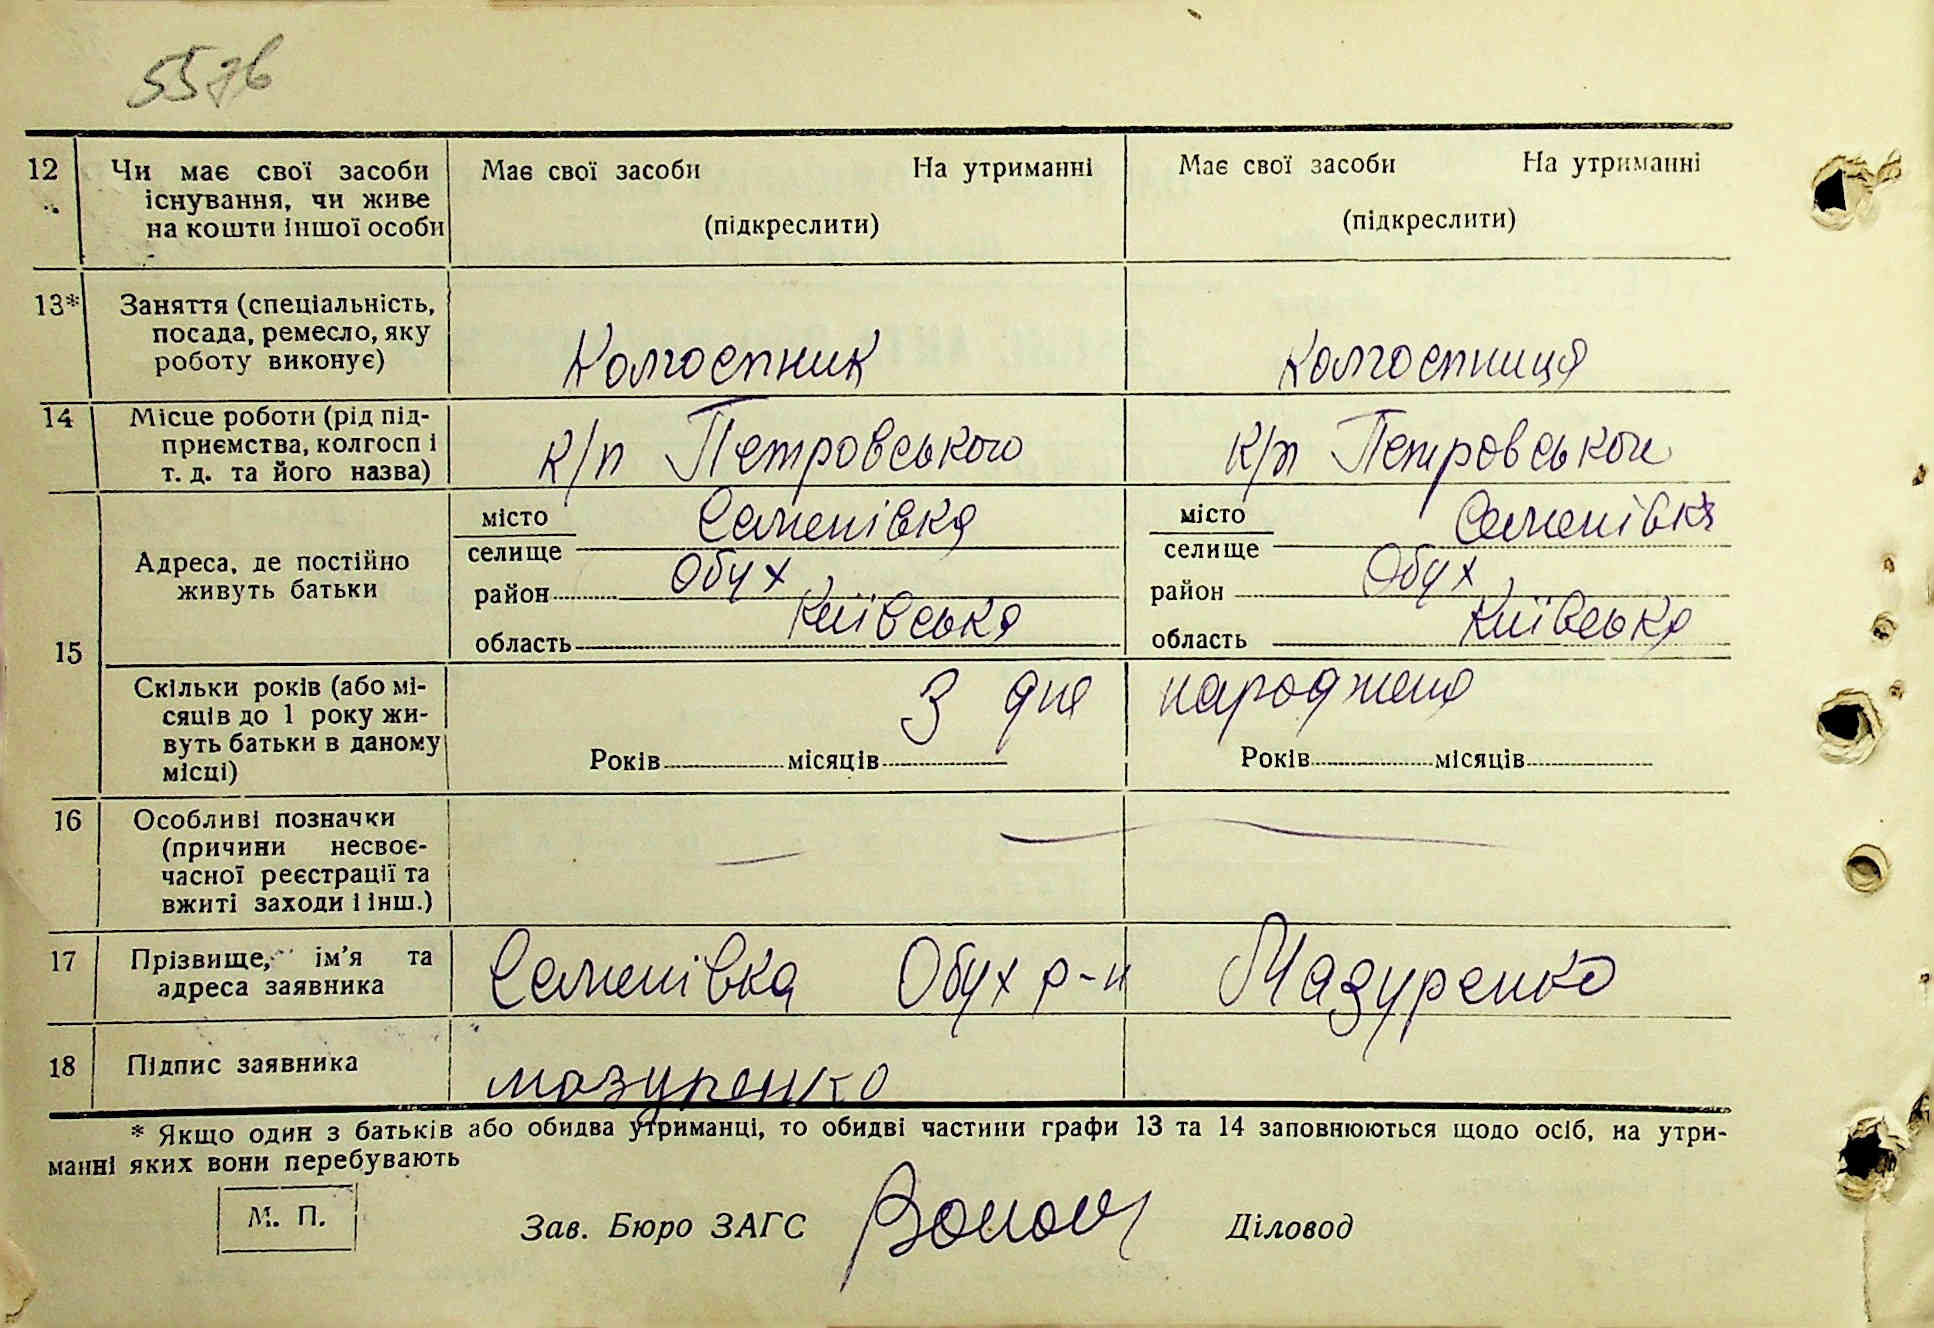 557б
12 Чи має свої засоби існування, чи живе на кошти іншої особи
Має свої засоби На утриманні
(підкреслити)
Має свої засоби На утриманні
(підкреслити)
13* Заняття (спеціальність,
посада, ремесло, яку
роботу виконує)
Колгоспник
колгоспниця
14 Місце роботи (рід під-
приємства, колгосп і
т. д. та його назва)
к/п Петровського
к/п Петровського
15
Адреса, де постійно
живуть батьки
місто
селище Семенівка
район Обух
область Київська
місто
селище Семенівка
район Обух
область Київська
Скільки років (або мі-
сяців до 1 року жи-
вуть батьки в даному
місці)
З дня народження
Років місяців
Років місяців
16 Особливі позначки
(причини несвоє-
часної реєстрації та
вжиті заходи і інш.)
17 Прізвище, ім’я та
адреса заявника
Семенівка Обух р-н Мазуренко
18 Підпис заявника
мазуренко
* Якщо один з батьків або обидва утриманці, то обидві частини графи 13 та 14 заповнюються щодо осіб, на утри-
манні яких вони перебувають
М. П.
Зав. Бюро ЗАГС
Діловод